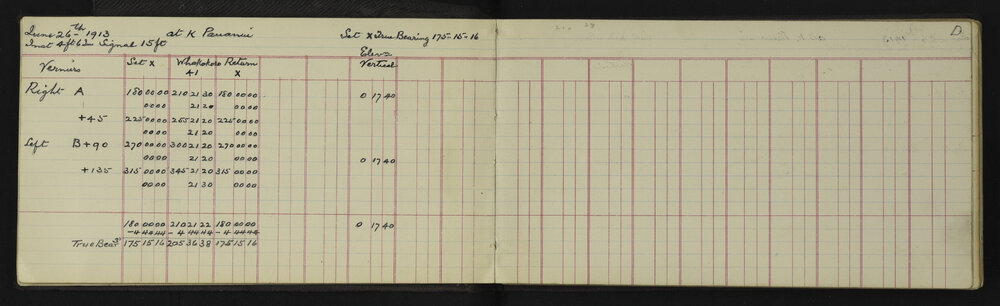 June 26th 1913 at K Pauanui Set X True Bearing 175-15-16 D
Inst 4ft 6in Signal 15ft
Elevn
Verniers Set X Whakokoro Return Vertical
41 X
Right A 180 00 00 210 21 30 180 00 00 0 17 40
00 00 21 20 00 00
+45 225 00 00 255 21 20 225 00 00
00 00 21 20 00 00
Left B+90 270 00 00 300 21 20 270 00 00
00 00 21 20 00 00 0 17 40
+135 315 00 00 345 21 20 315 00 00
00 00 21 30 00 00
180 00 00 210 21 22 180 00 00 0 17 40
-4 44 44 -4 44 44 -4 44 44
True Bear 175 15 16 205 36 38 175 15 16